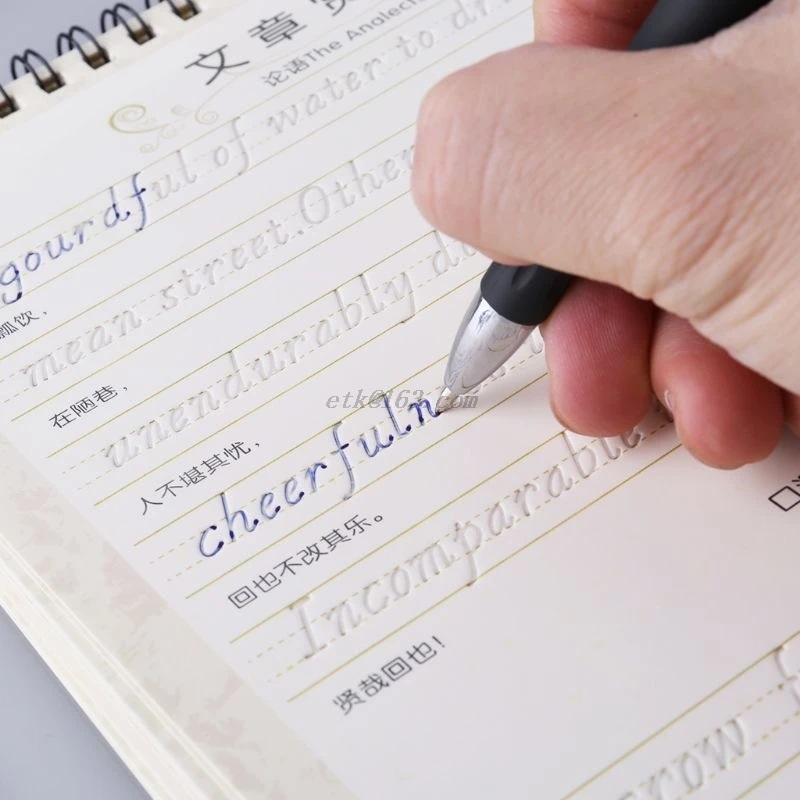 文章
论语The Analec
gourdful of water to dr
瓢饮,
mean street.Other
在陋巷,
unendurably d
人不堪其忧,
cheerfuln
etk@163.com
回也不改其乐。
Incomparable
贤哉回也!
row f